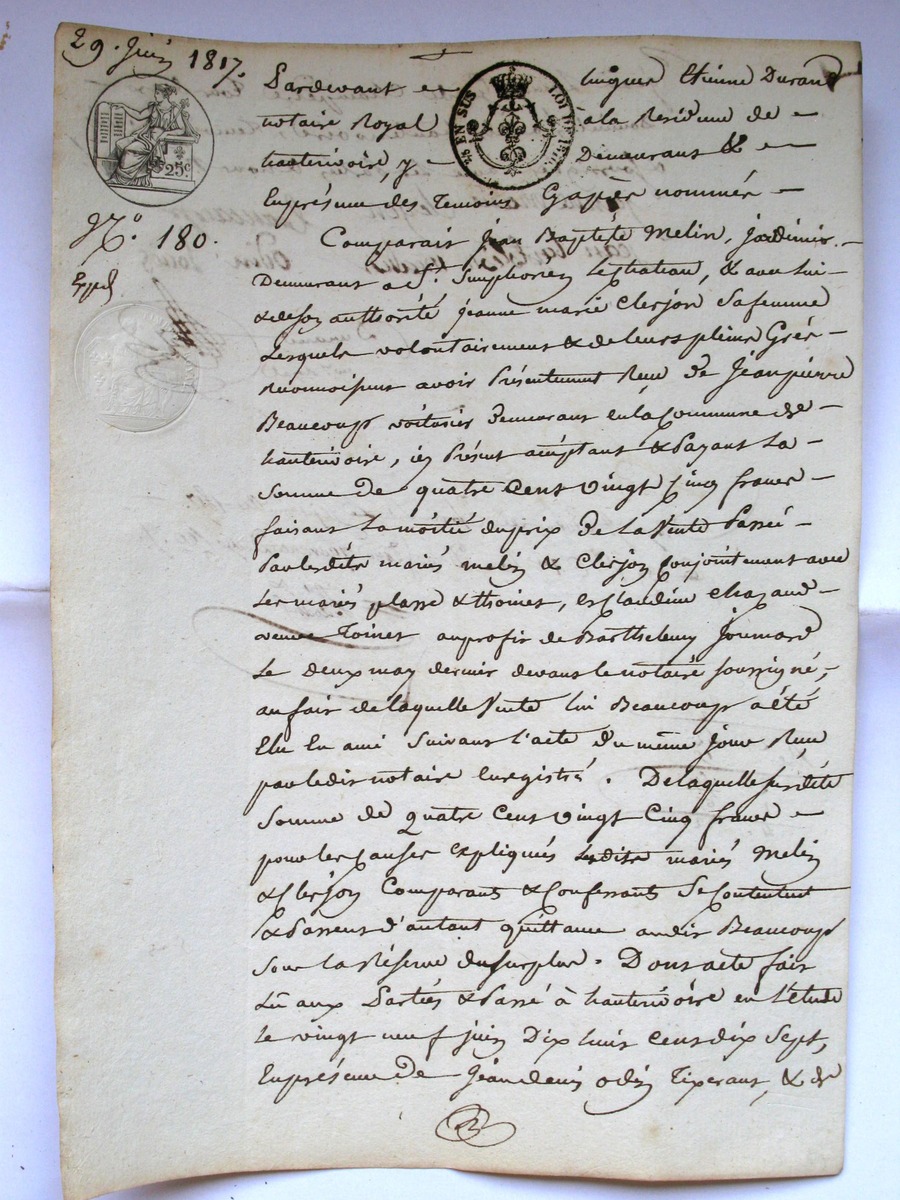 29. Juin 1817.
25 EN SUS LOI DE 18
25c.
N.º 180.
Exped
Pardevant hugues Etienne Durand
notaire Royal à la Residence de
hauterivoire, y Demeurant &
En présence des Temoins Gapès nommés
Comparait jean Baptiste Melin, jardinier
Demeurant a St. Simphorien Le chateau, & avec Lui
& de son authorité jeanne marie Clerjon Safemme
Lesquels volontairement & de leurs pleins Grés
Reconnoissent avoir Présentement Reçu De Jeanpierre
Beaucoup voiturier Demeurant en la Commune de
hauterivoire, icy Présent acceptant & Payant La
Somme de quatre Cent Vingt Cinq francs
faisant La moitié du prix De La Vente Passée
Par lesdits mariés melin & Clerjon Conjointement avec
Les mariés plasse & thoinet, et Claudine Chazaud
veuve Toinet au profit de Barthelemy Joumard
Le deux may dernier devant le notaire soussigné,
au fait de laquelle Vente lui Beaucoup a été
Elu En ami Suivant l'acte Du même jour Reçu
par ledit notaire Enregistré. De laquelle susdite
Somme de Quatre Cent Vingt Cinq francs
pour les causes Expliquées Lesdits mariés Melin
& Clerjon Comparants & Confessants Se Contentent
& Passent d'autant quittance audit Beaucoup
Sous La Réserve du surplus. Dont acte fait
Lû aux Parties & Passé à hauterivoire en L'étude
Le vingt neuf juin Dix huit Cent dix Sept,
En présence De Jean denis odin Tixerant, & de